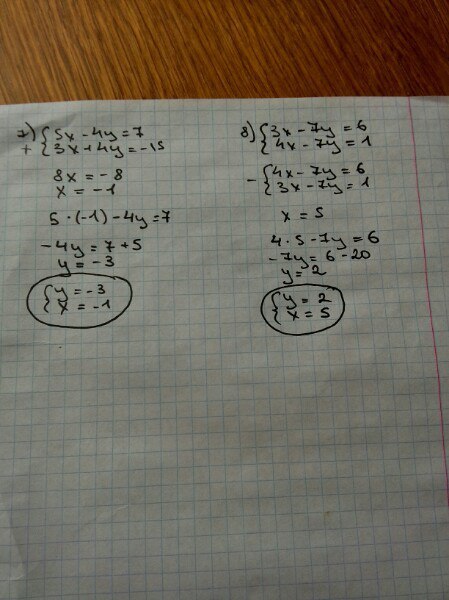 7) { 5x - 4y = 7
+ { 3x + 4y = -15
8x = -8
x = -1
5 · (-1) - 4y = 7
-4y = 7 + 5
y = -3
{ y = -3
x = -1
8) { 3x - 7y = 6
4x - 7y = 1
- { 4x - 7y = 6
3x - 7y = 1
x = 5
4 · 5 - 7y = 6
-7y = 6 - 20
y = 2
{ y = 2
x = 5